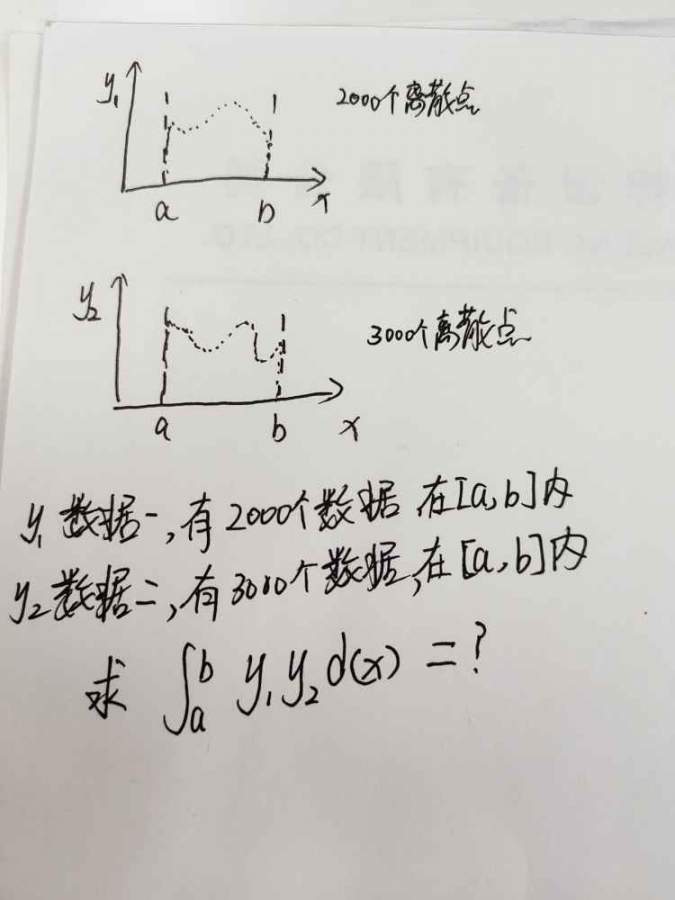 y₁
2000个离散点
a b x
y₂
3000个离散点
a b x
y₁ 数据一,有2000个数据 在[a,b]内
y₂数据二,有3000个数据,在[a,b]内
求 ∫ₐᵇ y₁y₂d(x) =?